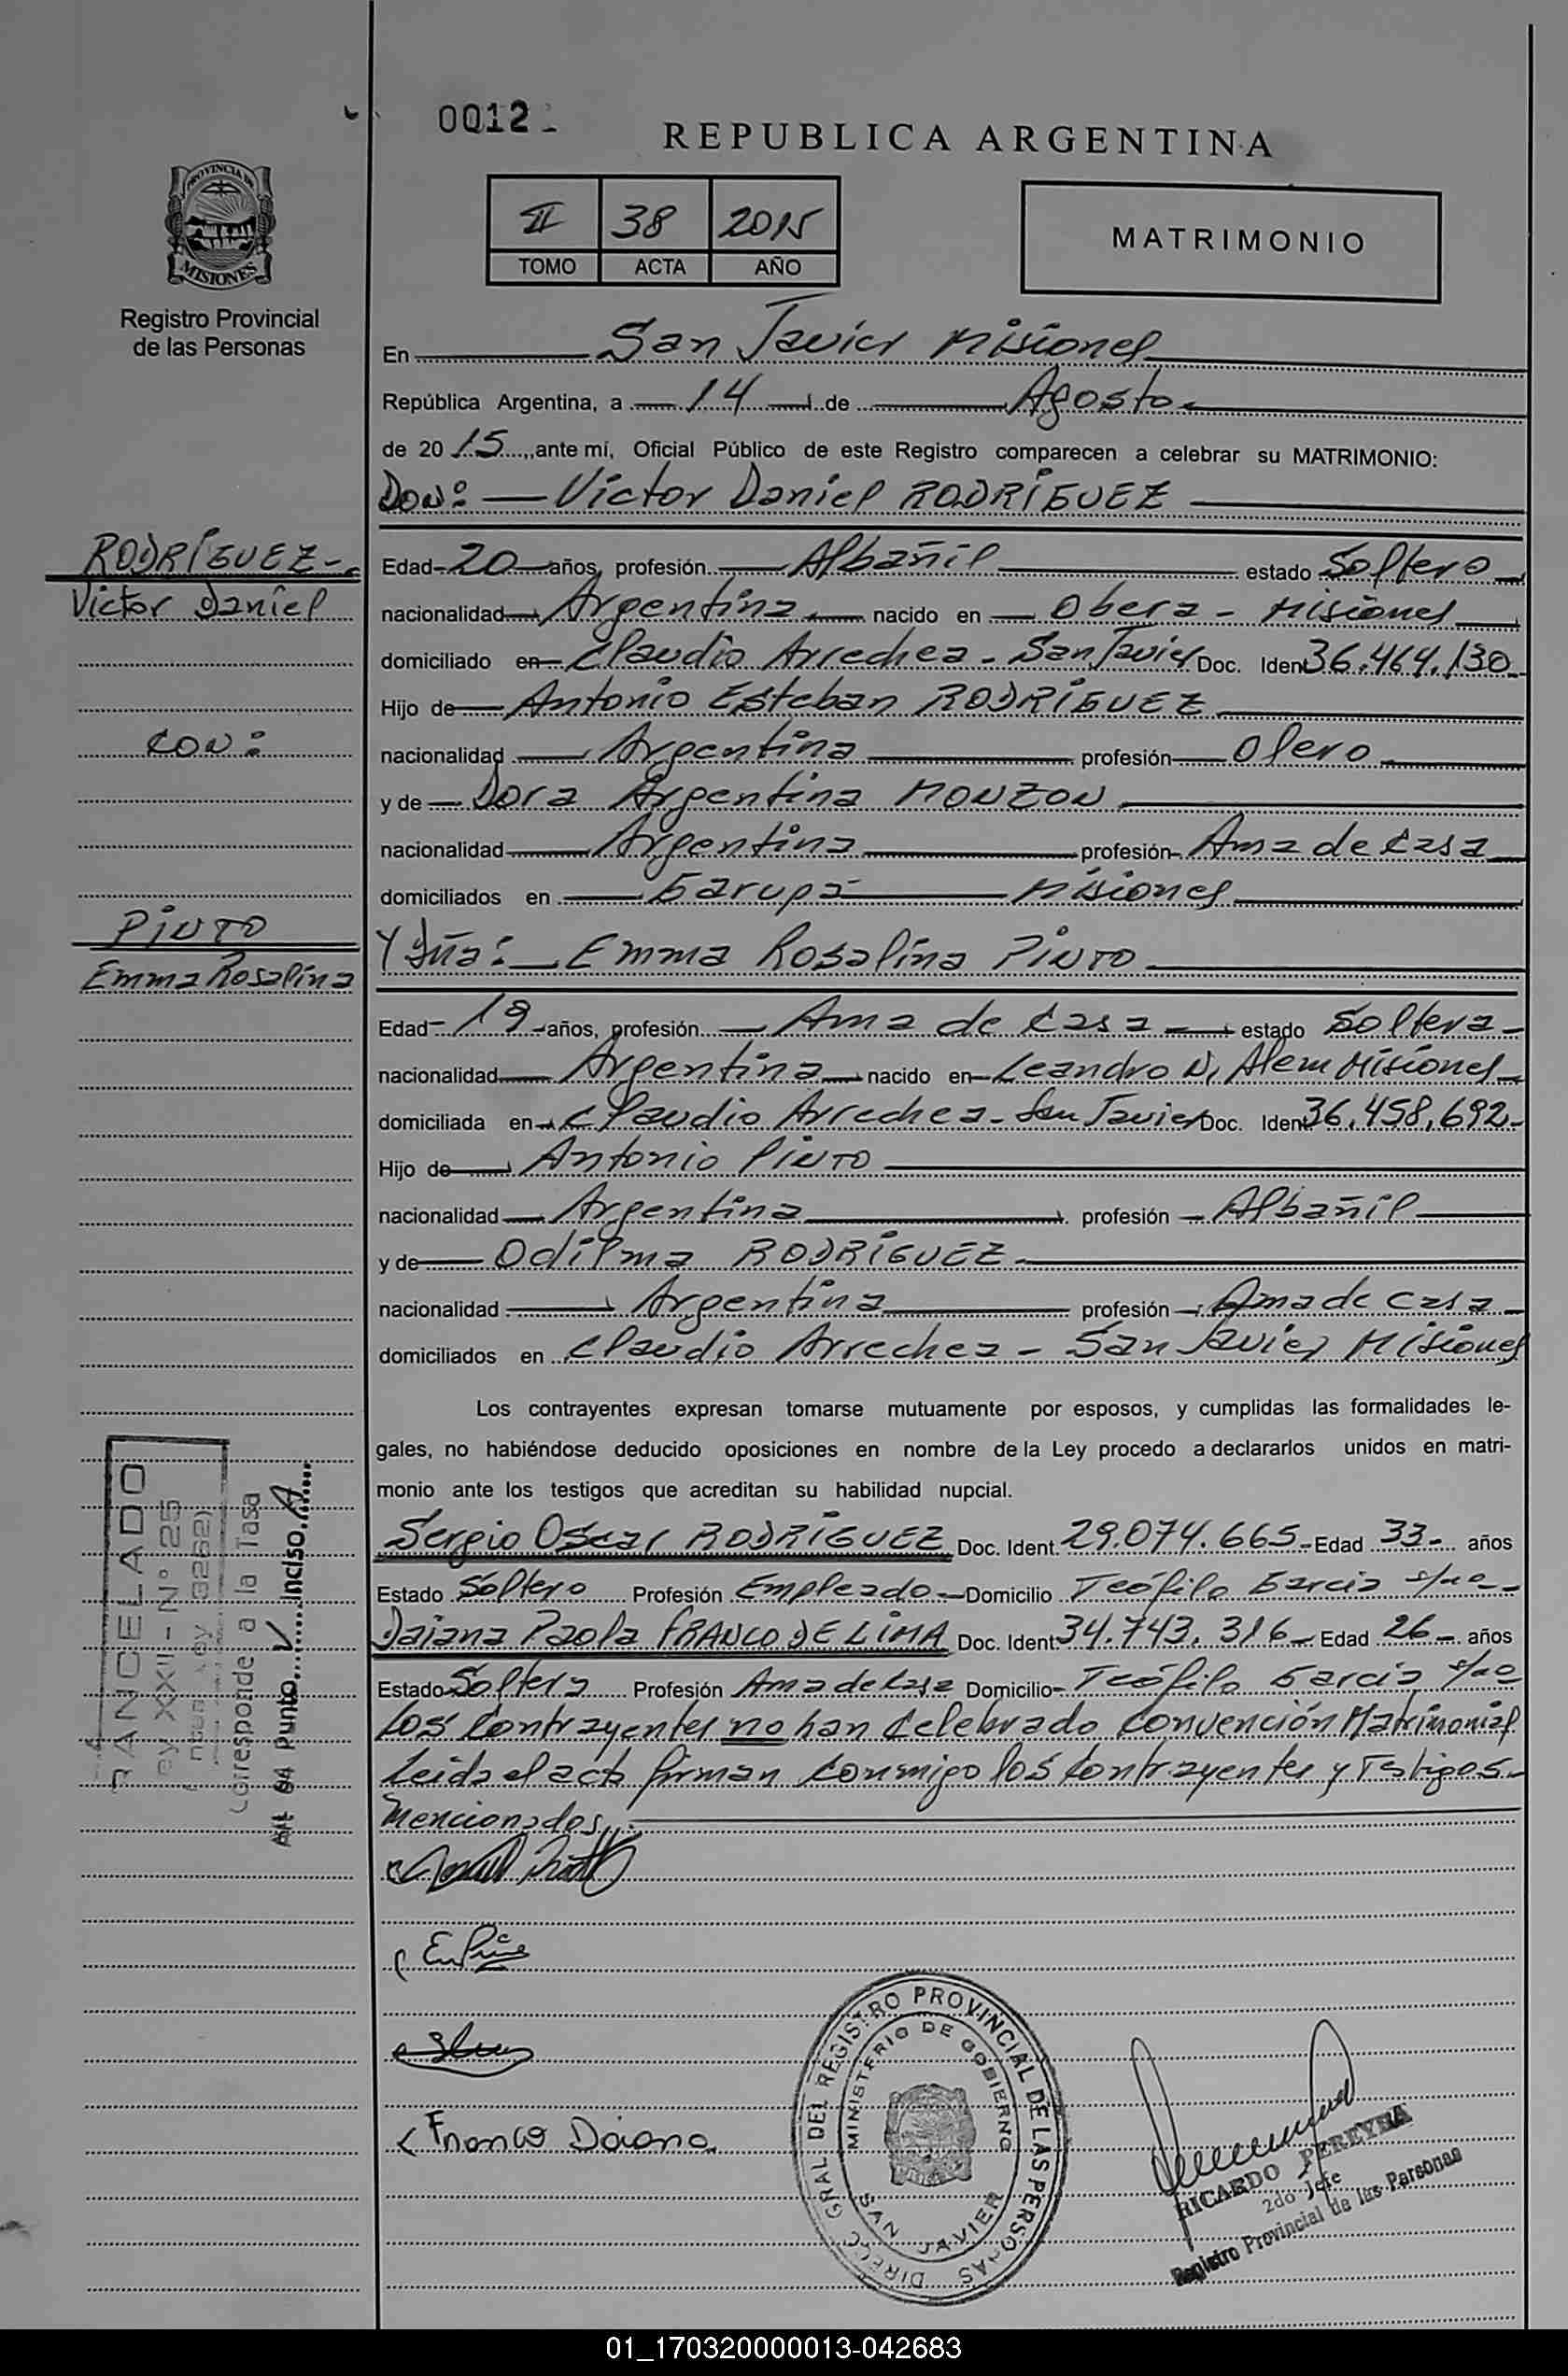 0012
REPUBLICA ARGENTINA
II 38 2015
TOMO ACTA AÑO
MATRIMONIO
PROVINCIA DE
MISIONES
Registro Provincial
de las Personas
En San Javier Misiones
República Argentina, a 14 de Agosto
de 2015, ante mí, Oficial Público de este Registro comparecen a celebrar su MATRIMONIO:
Don: Víctor Daniel RODRÍGUEZ
RODRÍGUEZ
Victor Daniel
con:
PINTO
Emma Rosalina
Edad 20 años, profesión Albañil estado Soltero
nacionalidad Argentina nacido en Obera - Misiones
domiciliado en Claudio Arrechea - San Javier Doc. Ident 36.464.130
Hijo de Antonio Esteban RODRÍGUEZ
nacionalidad Argentina profesión Olero
y de Dora Argentina MONZON
nacionalidad Argentina profesión Ama de Casa
domiciliados en Garupá Misiones
Y Dña: Emma Rosalina PINTO
Edad 19 años, profesión Ama de Casa estado Soltera
nacionalidad Argentina nacido en Leandro N. Alem Misiones
domiciliada en Claudio Arrechea - San Javier Doc. Ident 36.458.692
Hijo de Antonio PINTO
nacionalidad Argentina profesión Albañil
y de Odilma RODRÍGUEZ
nacionalidad Argentina profesión Ama de Casa
domiciliados en Claudio Arrechea - San Javier Misiones
Los contrayentes expresan tomarse mutuamente por esposos, y cumplidas las formalidades le-
gales, no habiéndose deducido oposiciones en nombre de la Ley procedo a declararlos unidos en matri-
monio ante los testigos que acreditan su habilidad nupcial.
Sergio Oscar RODRÍGUEZ Doc. Ident. 29.074.665 Edad 33 años
Estado Soltero Profesión Empleado Domicilio Teófilo Garcia s/no
Daiana Paola FRANCO DE LIMA Doc. Ident. 34.743.316 Edad 26 años
Estado Soltera Profesión Ama de Casa Domicilio Teófilo Garcia s/no
Los Contrayentes no han Celebrado Convención Matrimonial
Leida el acta firman Conmigo los Contrayentes y Testigos
Mencionados.
CANCELADO
Ley XXII - N° 25
Ley 3262)
Corresponde a la Tasa
Art 04 Punto V Inciso A
Franco Daiana
DIRECC GRAL DEL REGISTRO PROVINCIAL DE LAS PERSONAS
MINISTERIO DE GOBIERNO
SAN JAVIER
RICARDO PEREYRA
2do Jefe
Registro Provincial de las Personas
01_170320000013-042683